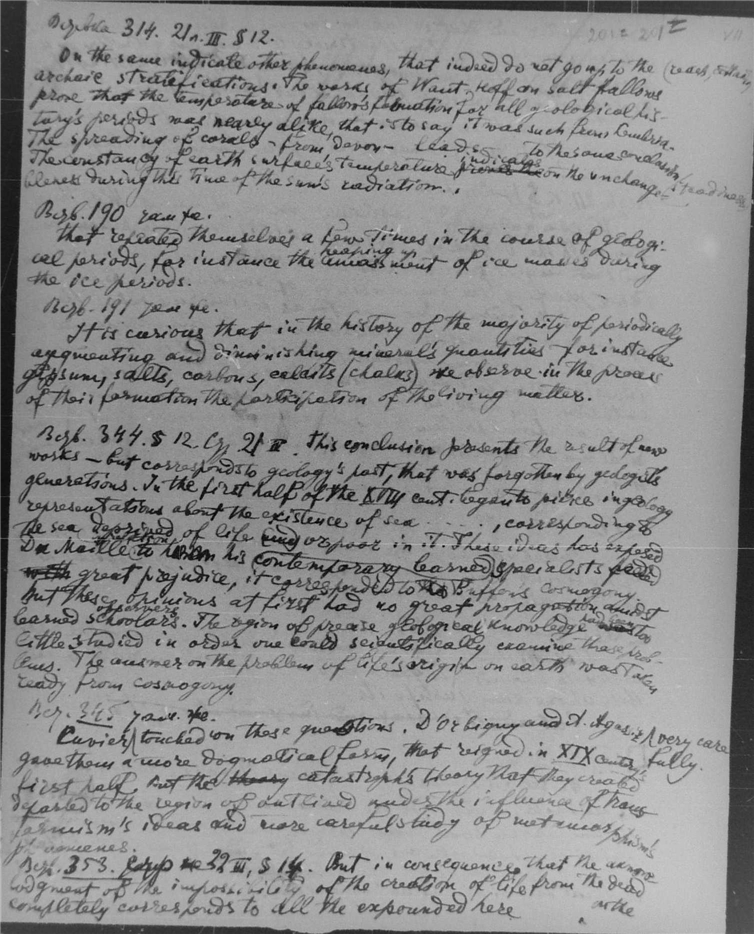 314. 21 п. III. § 12.
On the same indicate other phenomenes, that indeed do not going to the (reach,
archaic stratifications. The works of Want-Hoff on salt fallows
prove that the temperature of fallow's formation for all geological his-
tory's periods was nearly alike, that is to say it was such from Cambria.
The spreading of corals - from devon - leads to the same conclusion
The constancy of earth surface's temperature indicates on the unchange- steadiness
bleness during this time of the sun's radiation.
190
that repeated themselves a few times in the course of geologi-
cal periods, for instance the heaping up amassment of ice masses during
the ice periods.
191
It is curious that in the history of the majority of periodically
augmenting and diminishing mineral's quantities - for instance
gypsum, salts, carbons, calcits (chalks) we observe in the process
of their formation the participation of the living matter.
344. § 12. 21 II. This conclusion presents the result of new
works - but corresponds to geology's past, that was forgotten by geologists
generations. In the first half of the XVIII cent. began to pierce in geology
representations about the existence of sea ....., corresponding to
the sea deprived of life or poor in it. These ideas has exposed
De Maille to his contemporary learned specialists
great prejudice, it corresponded to Buffon's cosmogony.
But these opinions at first had no great propagation amidst
learned scholars. The region of precise geological knowledge had been too
little studied in order one could scientifically examine these prob-
lems. The answer on the problem of life's origin on earth was taken
ready from cosmogony.
345
Cuvier touched on these questions. D'Orbigny and A. Agasiz very care
fully.
gave them a more dogmatical form, that reigned in XIX cent.
first half. But the catastroph's theory that they created
departed to the region of outlived under the influence of trans
formism's ideas and more careful study of metamorphism's
phenomenes.
353. 22 III, § 14. But in consequence that the
lodgment of the impossibility of the creation of life from the dead
completely corresponds to all the expounded here on the